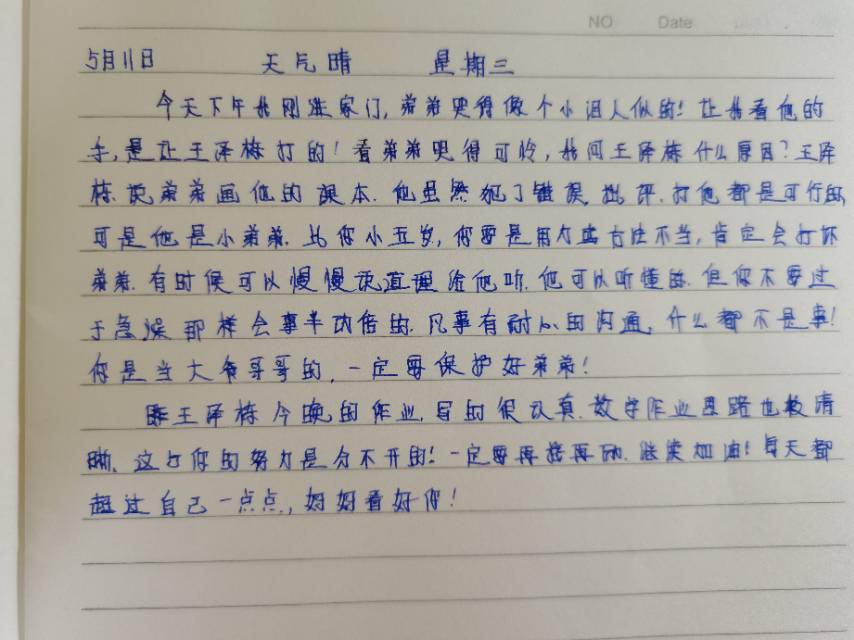 NO Date
5月11日 天气晴 星期三
今天下午我刚进家门,弟弟哭得像个小泪人似的!让我看他的
手,是让王泽栋打的!看弟弟哭得可怜,我问王泽栋什么原因?王泽
栋说弟弟画他的课本.他虽然犯了错误,批评.打他都是可行的,
可是他是小弟弟.比你小五岁,你要是用力或方法不当,肯定会打坏
弟弟.有时候可以慢慢说道理给他听.他可以听懂的.但你不要过
于急澡那样会事半功倍的.凡事有耐心的沟通,什么都不是事!
你是当大爷哥哥的,一定要保护好弟弟!
王泽栋今晚的作业,写的很认真.数学作业思路也较清
晰,这与你的努力是分不开的!一定要再接再励.继续加油!每天都
超过自己一点点,妈妈看好你!